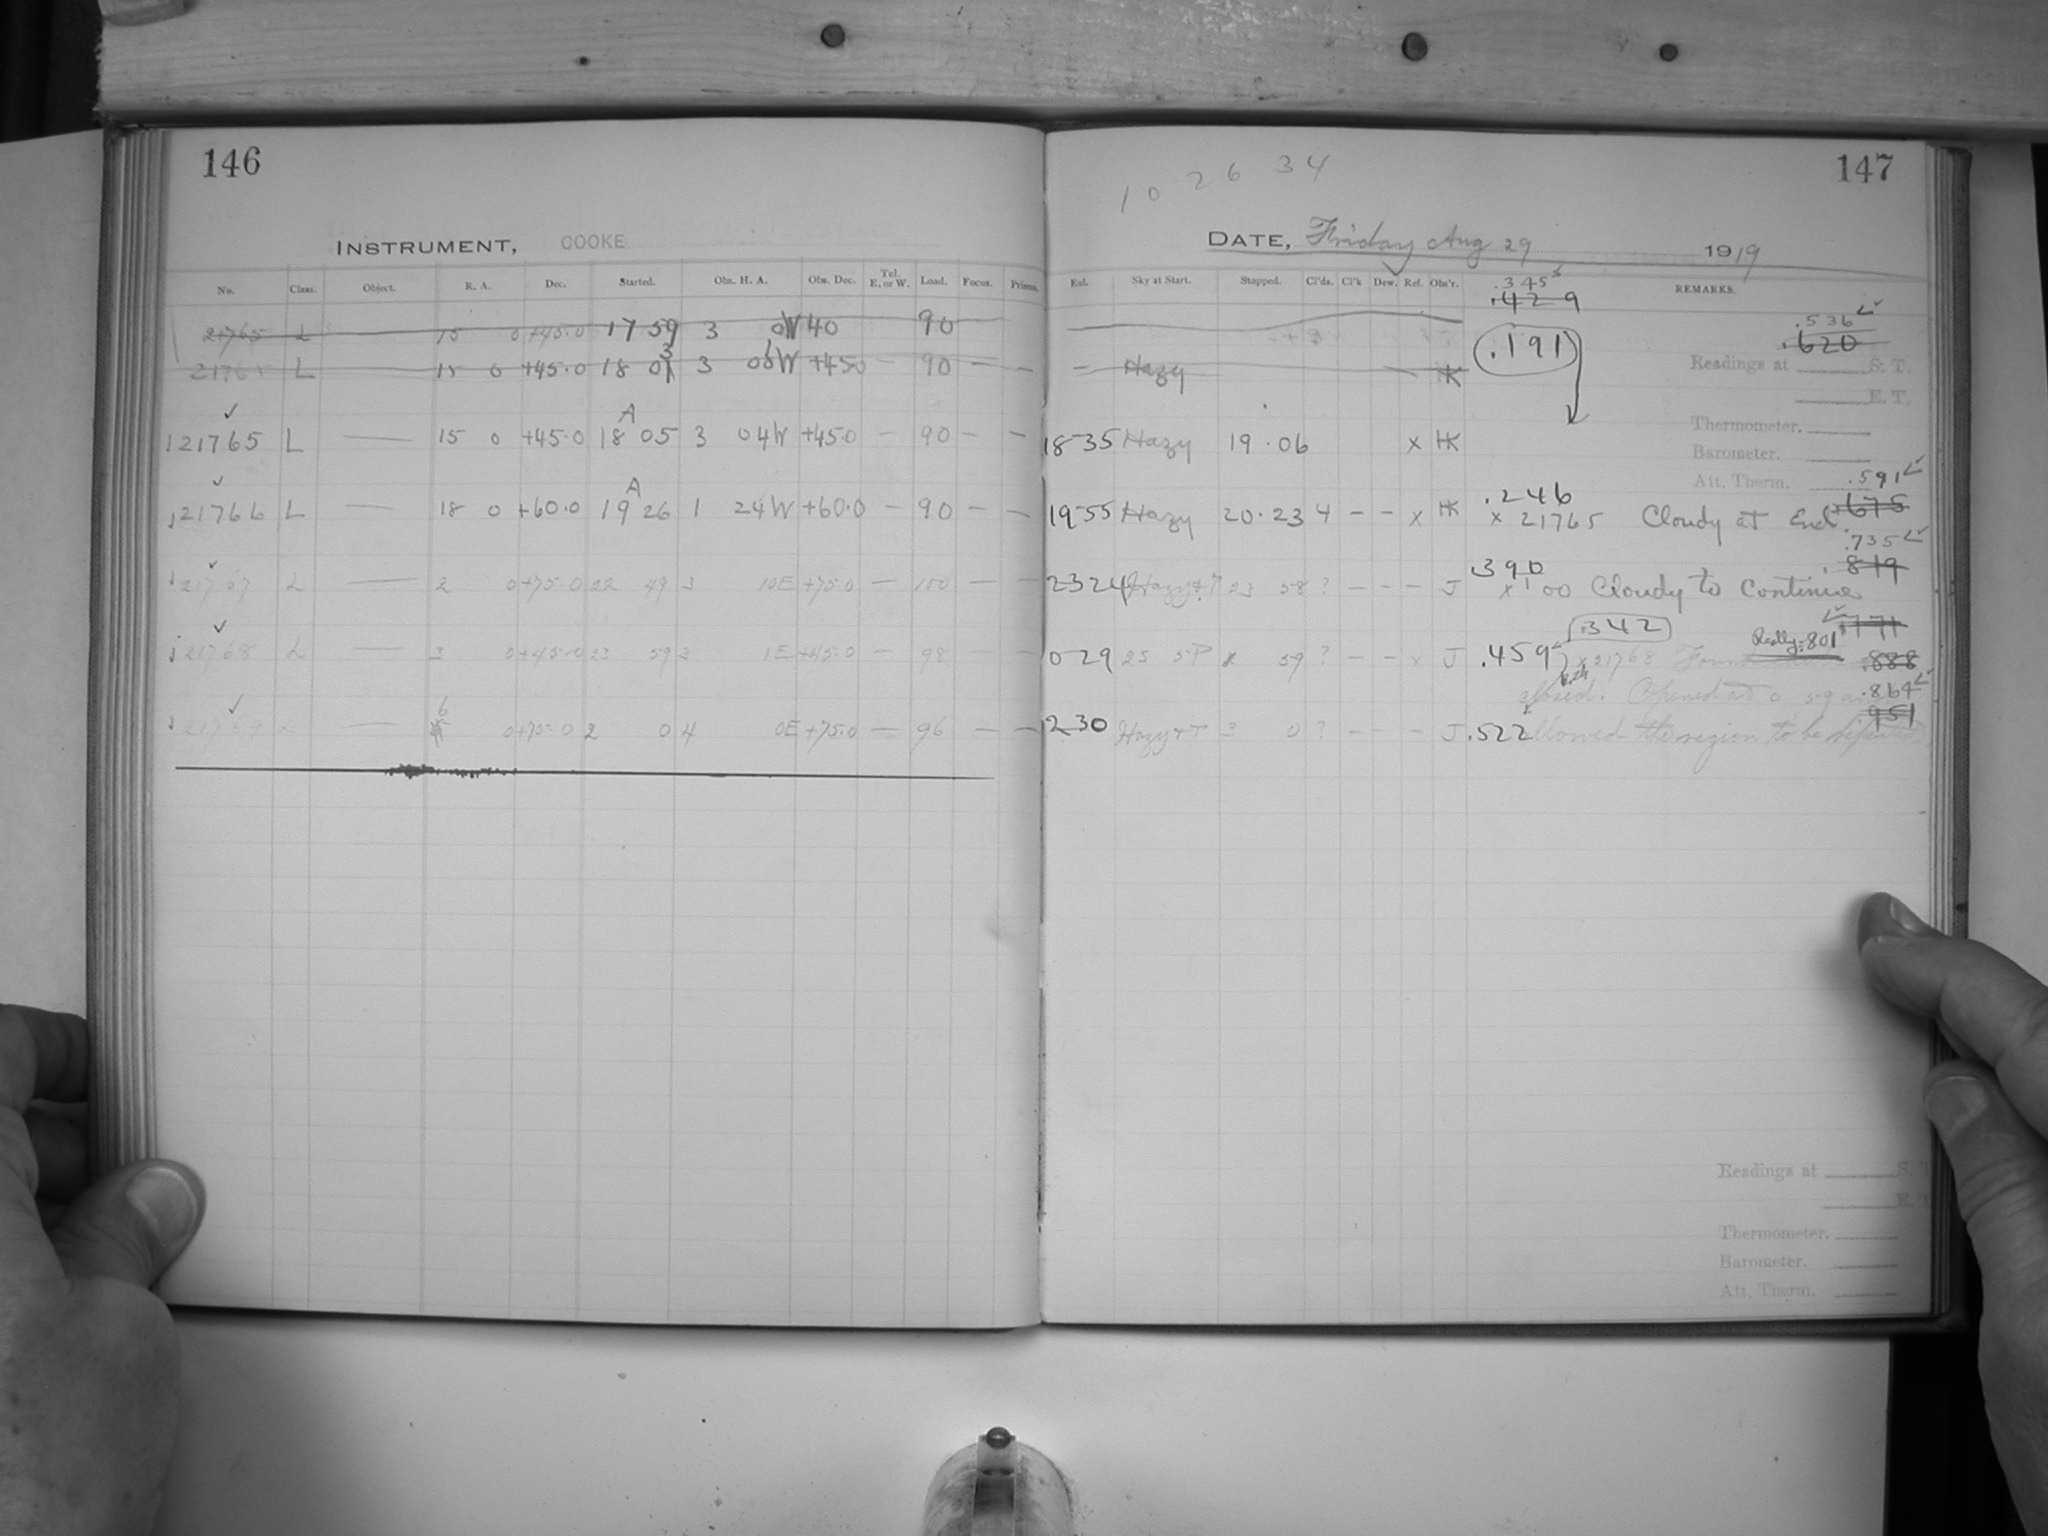 146
INSTRUMENT, COOKE
No. Class. Object. R. A. Dec. Started. Obs. H. A. Obs. Dec. Tel. E. or W. Load. Focus. Prisms.
21765 L 15 0 +45.0 17 59 3 0W 40 90
L 15 0 +45.0 18 3 W +45.0 — 90 — —
A
21765 L — 15 0 +45.0 18 05 3 04W +45.0 — 90 — —
A
21766 L — 18 0 +60.0 19 26 1 24W +60.0 — 90 — —
21767 L — 2 0 +75.0 22 49 3 10E +75.0 — 100 — —
21768 L — 3 0 +45.0 23 59 3 1E +45.0 — 98 — —
21769 — 6 0 +75.0 2 0 4 0E +75.0 — 96 — —
147
10 26 34
DATE, Friday Aug 29 1919
Sky at Start. Stopped. Cl'ds. Cl'k Dew. Ref. Obs'r. REMARKS.
.345
.429
.536
.620
.191
– Hazy — HK
Readings at S. T.
E. T.
Thermometer.
Barometer.
Att. Therm.
18-35 Hazy 19.06 x HK
.591
.675
19-55 Hazy 20.23 4 – – x HK .246
x 21765 Cloudy at End
.735
.819
23 24 23 58 ? – – – J .390
x 100 Cloudy to Continue
.342
.771
Really .801
0 29 59 ? – – x J .459 x 21768 Found
.888
closed. Opened at 0 59
.864
.951
2-30 3 0 ? – – – J .522 allowed the region to be
Readings at S. T.
E. T.
Thermometer.
Barometer.
Att. Therm.